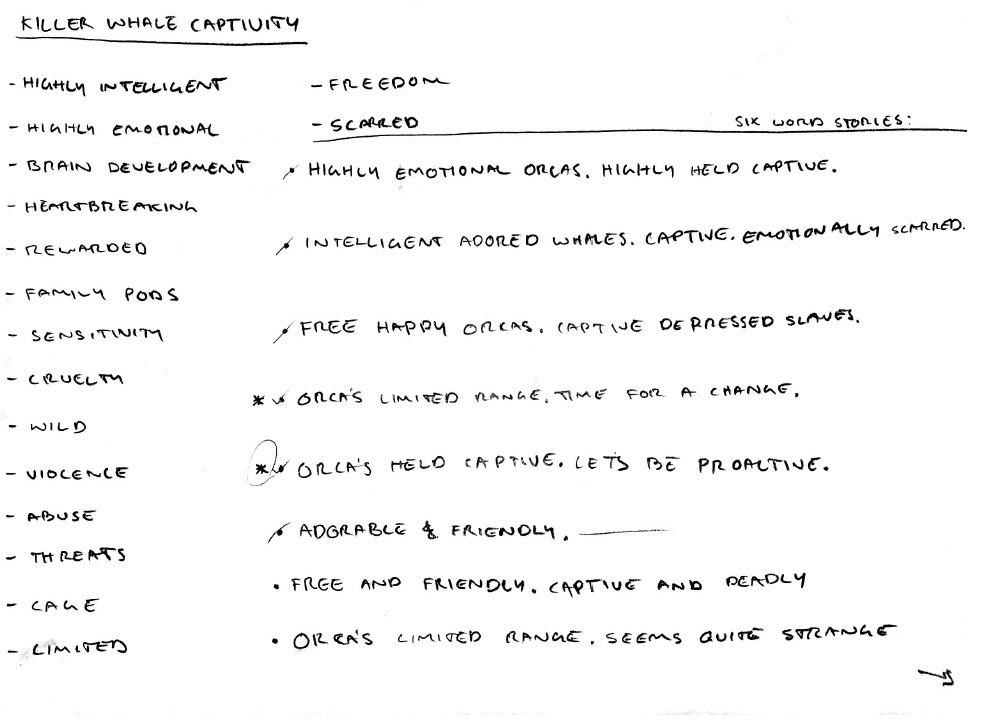 KILLER WHALE CAPTIVITY
- HIGHLY INTELLIGENT
- HIGHLY EMOTIONAL
- BRAIN DEVELOPMENT
- HEARTBREAKING
- REWARDED
- FAMILY PODS
- SENSITIVITY
- CRUELTY
- WILD
- VIOLENCE
- ABUSE
- THREATS
- CAGE
- LIMITED
- FREEDOM
- SCARRED
SIX WORD STORIES:
• HIGHLY EMOTIONAL ORCAS. HIGHLY HELD CAPTIVE.
• INTELLIGENT ADORED WHALES. CAPTIVE. EMOTIONALLY SCARRED.
• FREE HAPPY ORCAS. CAPTIVE DEPRESSED SLAVES.
* • ORCA'S LIMITED RANGE. TIME FOR A CHANGE.
* • ORCA'S HELD CAPTIVE. LETS BE PROACTIVE.
• ADORABLE & FRIENDLY. ———
• FREE AND FRIENDLY. CAPTIVE AND DEADLY
• ORCA'S LIMITED RANGE. SEEMS QUITE STRANGE
→